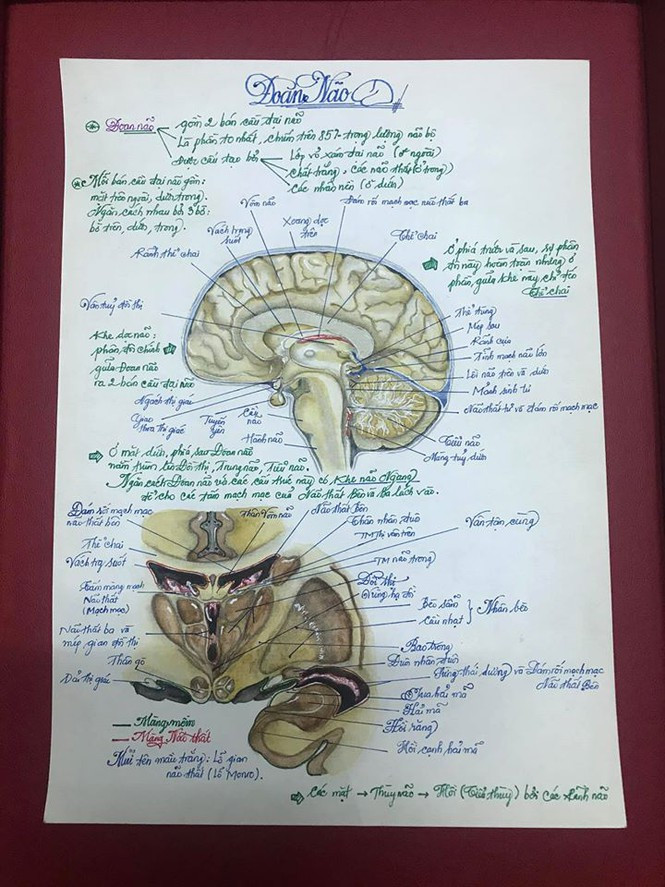 Đoan Não
Đoan não
gồm 2 bán cầu đại não
Là phần to nhất, chiếm trên 85% trọng lượng não bộ
Được cấu tạo bởi
Lớp vỏ xám đại não (ở ngoài)
Chất trắng, các não thất (ở trong)
Các nhân nền (ở dưới)
Mỗi bán cầu đại não gồm:
mặt trên ngoài, dưới, trong.
Ngăn cách nhau bởi 3 bờ:
bờ trên, dưới, trong.
Vòm não
Vách trong suốt
Xoang dọc trên
Đám rối mạch mạc não thất ba
Thể chai
Rãnh thể chai
Ở phía trước và sau, sự phân
đôi này hoàn toàn nhưng ở
phần giữa khe này, chỉ đến
Thể chai
Vân tuỷ đồi thị
Khe dọc não:
phân đôi chính
giữa Đoan não
ra 2 bán cầu đại não
Thể tùng
Mép sau
Rãnh cựa
Tĩnh mạch não lớn
Lồi não trên và dưới
Mảnh sinh tư
Não thất tư và đám rối mạch mạc
Tiểu não
Màng tuỷ dưới
Ngách thị giác
Giao thoa thị giác
Tuyến yên
Cầu não
Hành não
Ở mặt dưới, phía sau Đoan não
nằm trùm lên Đồi thị, Trung não, Tiểu não.
Ngăn cách Đoan não và các cấu trúc này có Khe não Ngang
để cho các tấm mạch mạc của Não thất Bên và Ba lách vào.
Đám rối mạch mạc
não thất bên
Thân Vòm não
Não thất Bên
Thân nhân đuôi
TM thị vân trên
Vân tận cùng
Thể chai
Vách trg suốt
Tấm màng mạch
Não thất
(Mạch mạc)
TM não trong
Đồi thị
Vùng hạ đồi
Bèo sẫm
Cầu nhạt
Nhân bèo
Não thất ba và
mép gian đồi thị
Thần gò
Dải thị giác
Bao trong
Đuôi nhân đuôi
Sừng thái dương và Đám rối mạch mạc
Não thất Bên
Tua hải mã
Hải mã
Hồi răng
Hồi cạnh hải mã
Màng mềm
Màng Não thất
Mũi tên màu trắng: Lỗ gian
não thất (Lỗ Monro).
Các mặt → Thùy não → Hồi (Tiểu thùy) bởi các Rãnh não